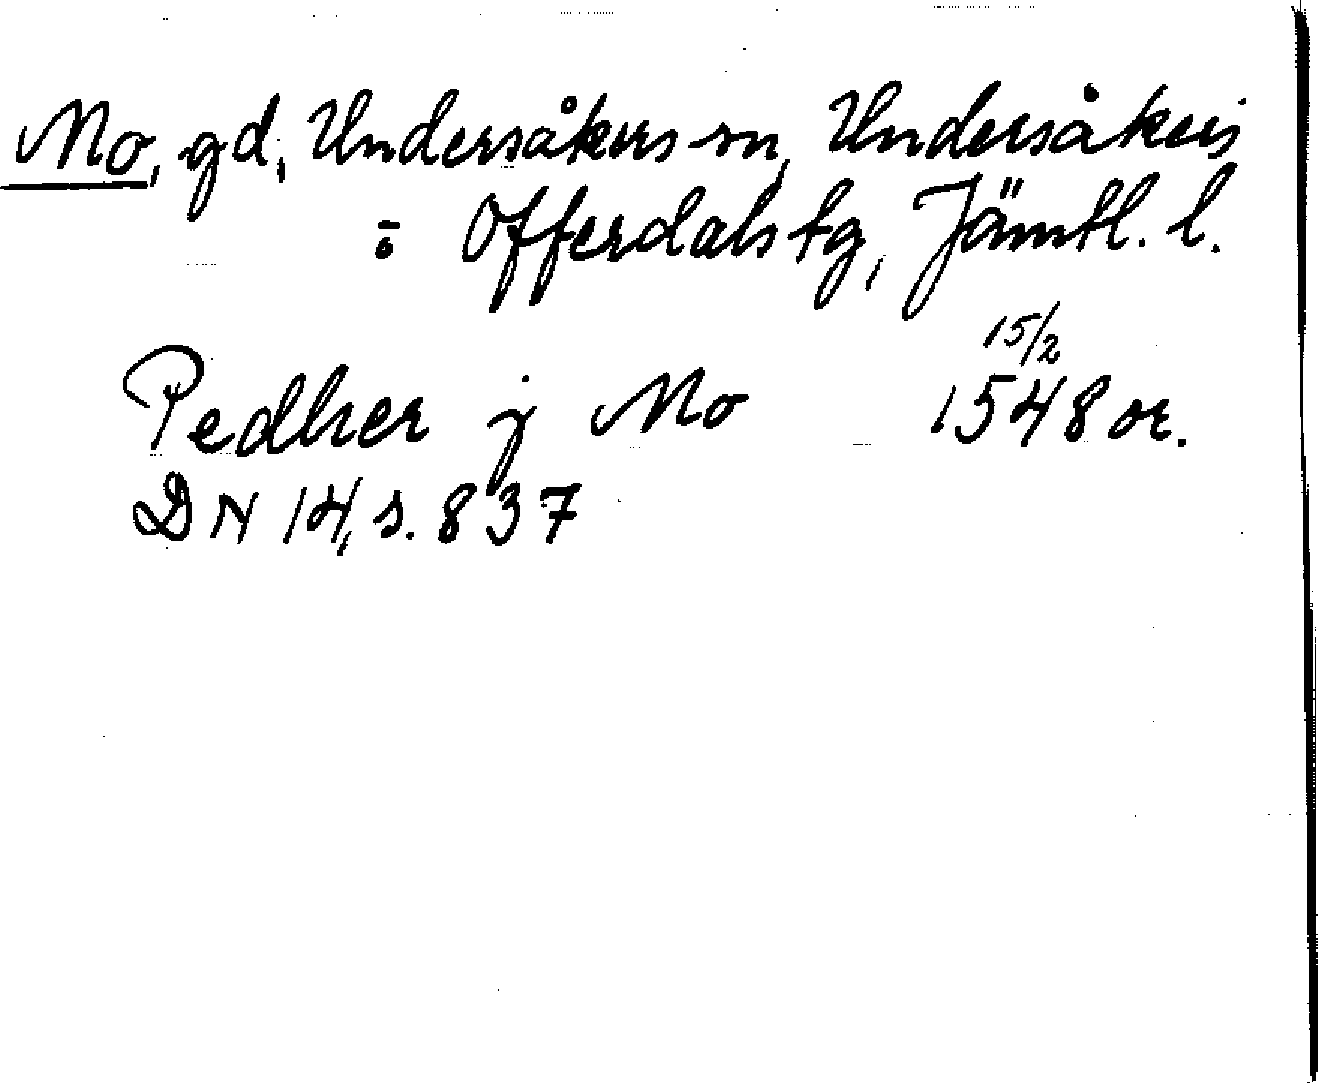 Mo, gd, Undersåkers sn, Undersåkers
o Offerdals tg, Jämtl. l.
15/2
Pedher j Mo 1548 or.
DN 14, s. 837